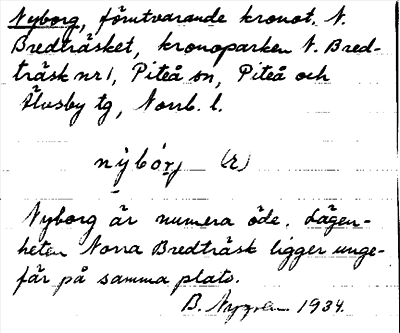 Nyborg, förutvarande kronot. N.
Bredträsket, kronoparken N. Bred-
träsk nr 1, Piteå sn, Piteå och
Älvsby tg, Norrb. l.
nỳbórj (r)
Nyborg är numera öde. Lägen-
heten Norra Bredträsk ligger unge-
fär på samma plats.
B. Nygren 1934.